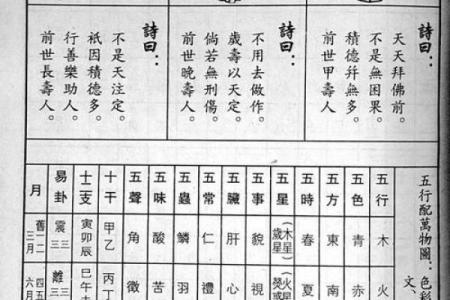 詩曰：
天天拜佛前。
不是無困果。
積德幷無多。
前世甲壽人
詩曰：
不用去做作。
歲壽以天定。
倘若無刑傷。
前世晚壽人。
詩曰：
不是天注定。
祇因積德多。
行善樂助人。
前世長壽人。
五行配萬物圖：色彩
文、
五行 木 火
五色 青 赤
五方 東 南
五時 春 夏
五星 (木星)歲星 (火星)熒惑
五事 貌 視
五臟 肝 心
五常 仁 禮
五蟲 鱗 羽
五味 酸 苦
五聲 角 徵
十干 甲乙 丙丁
十二支 寅卯辰 巳午
易卦 震☳ 離☲
月 舊三月 四五六月